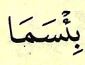 بِئۡسَمَا